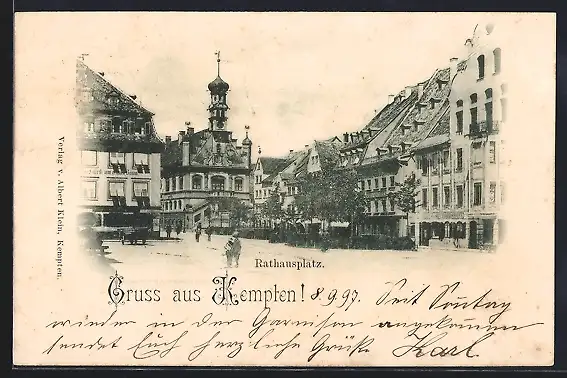 Verlag v. Albert Klein, Kempten.
Rathausplatz.
Gruss aus Kempten! 8.9.97. Seit Sontag
wieder in der Garnison angekommen
sendet Euch herzliche Grüße Karl